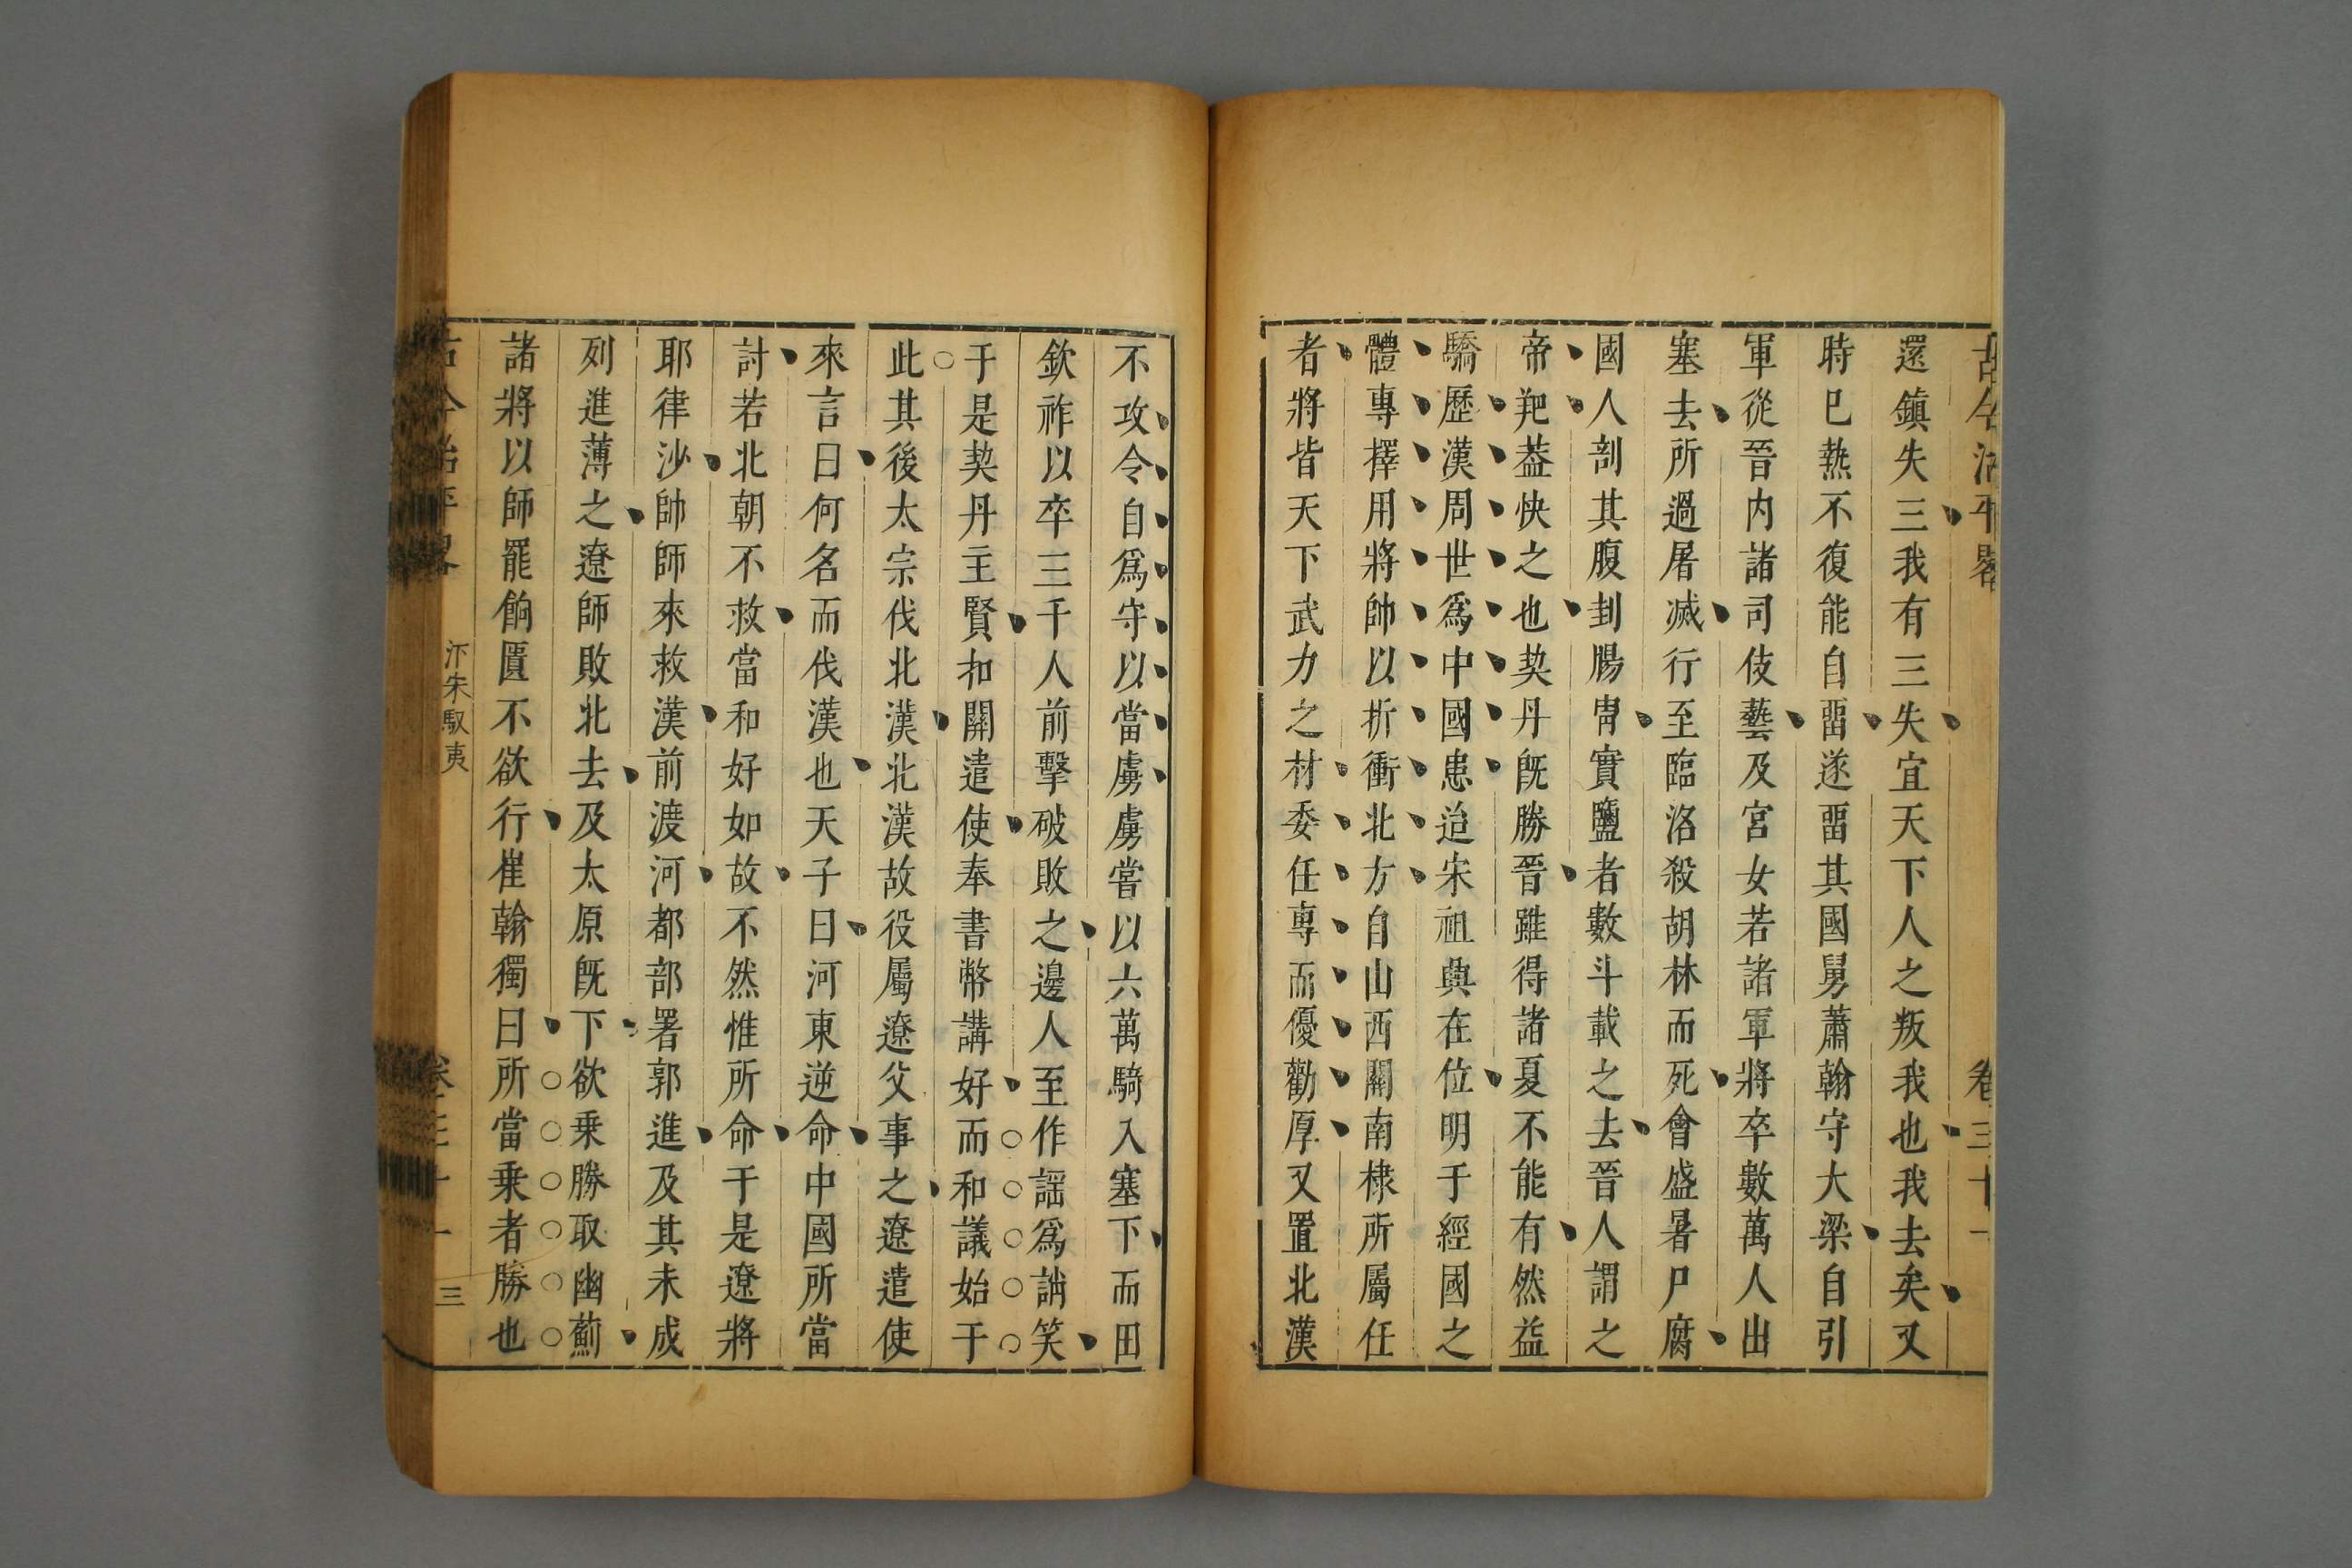 古今治平畧
卷三十一
還鎮失三我有三失宜天下人之叛我也我去矣又
時已熱不復能自畱遂畱其國舅蕭翰守大梁自引
軍從晉内諸司伎藝及宮女若諸軍將卒數萬人出
塞去所過屠滅行至臨洛殺胡林而死會盛暑尸腐
國人剖其腹刲腸胃實鹽者數斗載之去晉人謂之
帝羓葢快之也契丹既勝晉雖得諸夏不能有然益
驕歷漢周世爲中國患迨宋祖典在位明于經國之
體專擇用將帥以折衝北方自山西關南棣所屬任
者將皆天下武力之材委任專而優勸厚又置北漢
不攻令自爲守以當虜虜嘗以六萬騎入塞下而田
欽祚以卒三千人前擊破敗之邊人至作謡爲誚笑
于是契丹主賢扣關遣使奉書幣講好而和議始于
此其後太宗伐北漢北漢故役屬遼父事之遼遣使
來言曰何名而伐漢也天子曰河東逆命中國所當
討若北朝不救當和好如故不然惟所命于是遼將
耶律沙帥師來救漢前渡河都部署郭進及其未成
列進薄之遼師敗北去及太原既下欲乗勝取幽薊
諸將以師罷餉匱不欲行崔翰獨曰所當乗者勝也
古今治平畧
汴宋馭夷
卷三十一
三